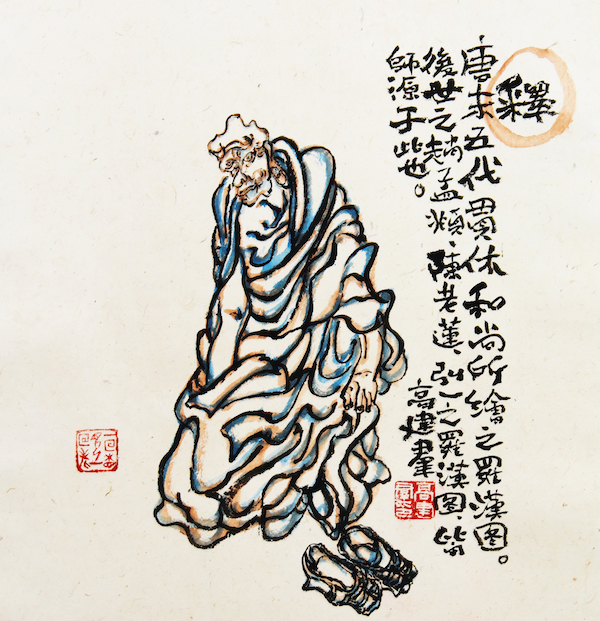 釋
唐末五代貫休和尚所繪之羅漢图。
後世之趙孟頫、陳老蓮、弘一之羅漢图、皆
師源于此也。
高建羣